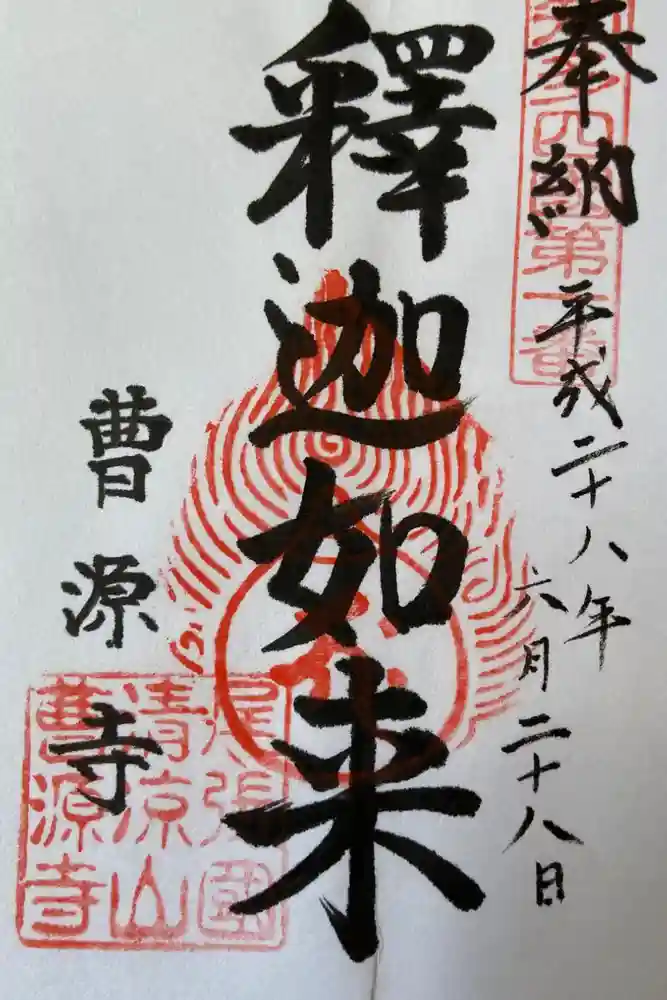 奉納
平成二十八年
六月二十八日
釋迦如来
曹源寺
四国第一番
尾張國
清涼山
曹源寺